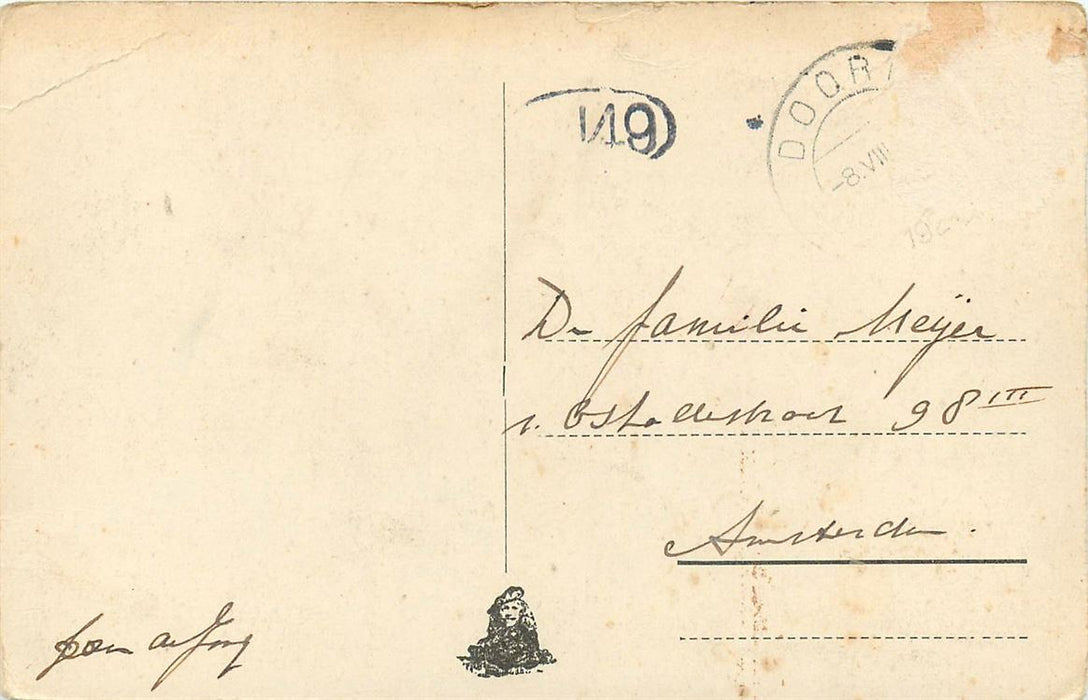 149
DOOR
-8.VIII
De familie Meijer
v. Ostadestraat 98 III
Amsterdam.
de Jong